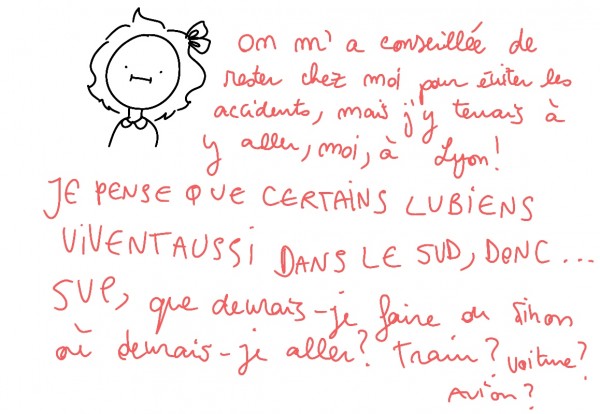 On m'a conseillée de
rester chez moi pour éviter les
accidents, mais j'y tenais à
y aller, moi, à Lyon!
JE PENSE QUE CERTAINS LUBIENS
VIVENT AUSSI DANS LE SUD, DONC...
SVP, que devrais-je faire ou sinon
où devrais-je aller? Train? Voiture?
Avion?